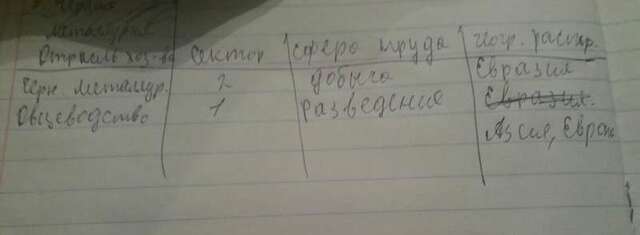 Черная
металургия
Отрасль хоз-ва сектор сфера труда геогр. распр.
Черн металур. 2 добыча Евразия
Овцеводство 1 разведение Евразия.
Азия, Европ